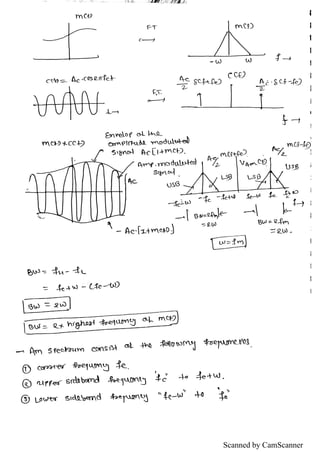 m(t)
FT
m(f)
-W W f→
c(t) = Ac·cos2πfct
FT
Ac/2 δ(f+fc) C(f) Ac/2 · δ(f-fc)
t→
f→
m(t)+c(t)
Envelop of the
complitude modulated
signal Ac[1+m(t)]
Amp. modulated
signal
Ac
- Ac[1+m(t)]
Ac/2 m(f+fc) VAm(f) Ac/2 m(f-fc)
USB LSB LSB USB
-fc-W -fc -fc+W fc-W fc fc+W f→
BW=2fm
=2W
BW=2fm
=2W
W=fm
BW= fH - fL
= fc+W - (fc-W)
BW = 2W
BW = 2 x highest frequency of m(t)
→ Am spectrum consist of the following frequencies.
① carrier frequency fc.
② upper sideband frequency "fc" to fc+W.
③ Lower sideband frequency "fc-W" to "fc"
Scanned by CamScanner